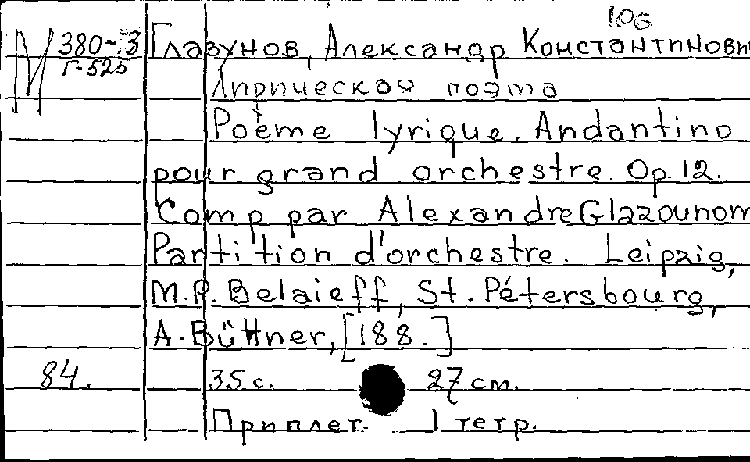 106
М 380-3 Глазунов, Александр Константинови
Г-525
Лирическая поэма
Poème lyrique. Andantino
pour grand orchestre. Op 12.
Comp par Alexandre Glazounow
Partition d'orchestre. Leipzig,
M.P. Belaieff, St. Pétersbourg,
A. Büttner, [188.]
84. 35 с. 27 см.
Приплет. 1 тетр.